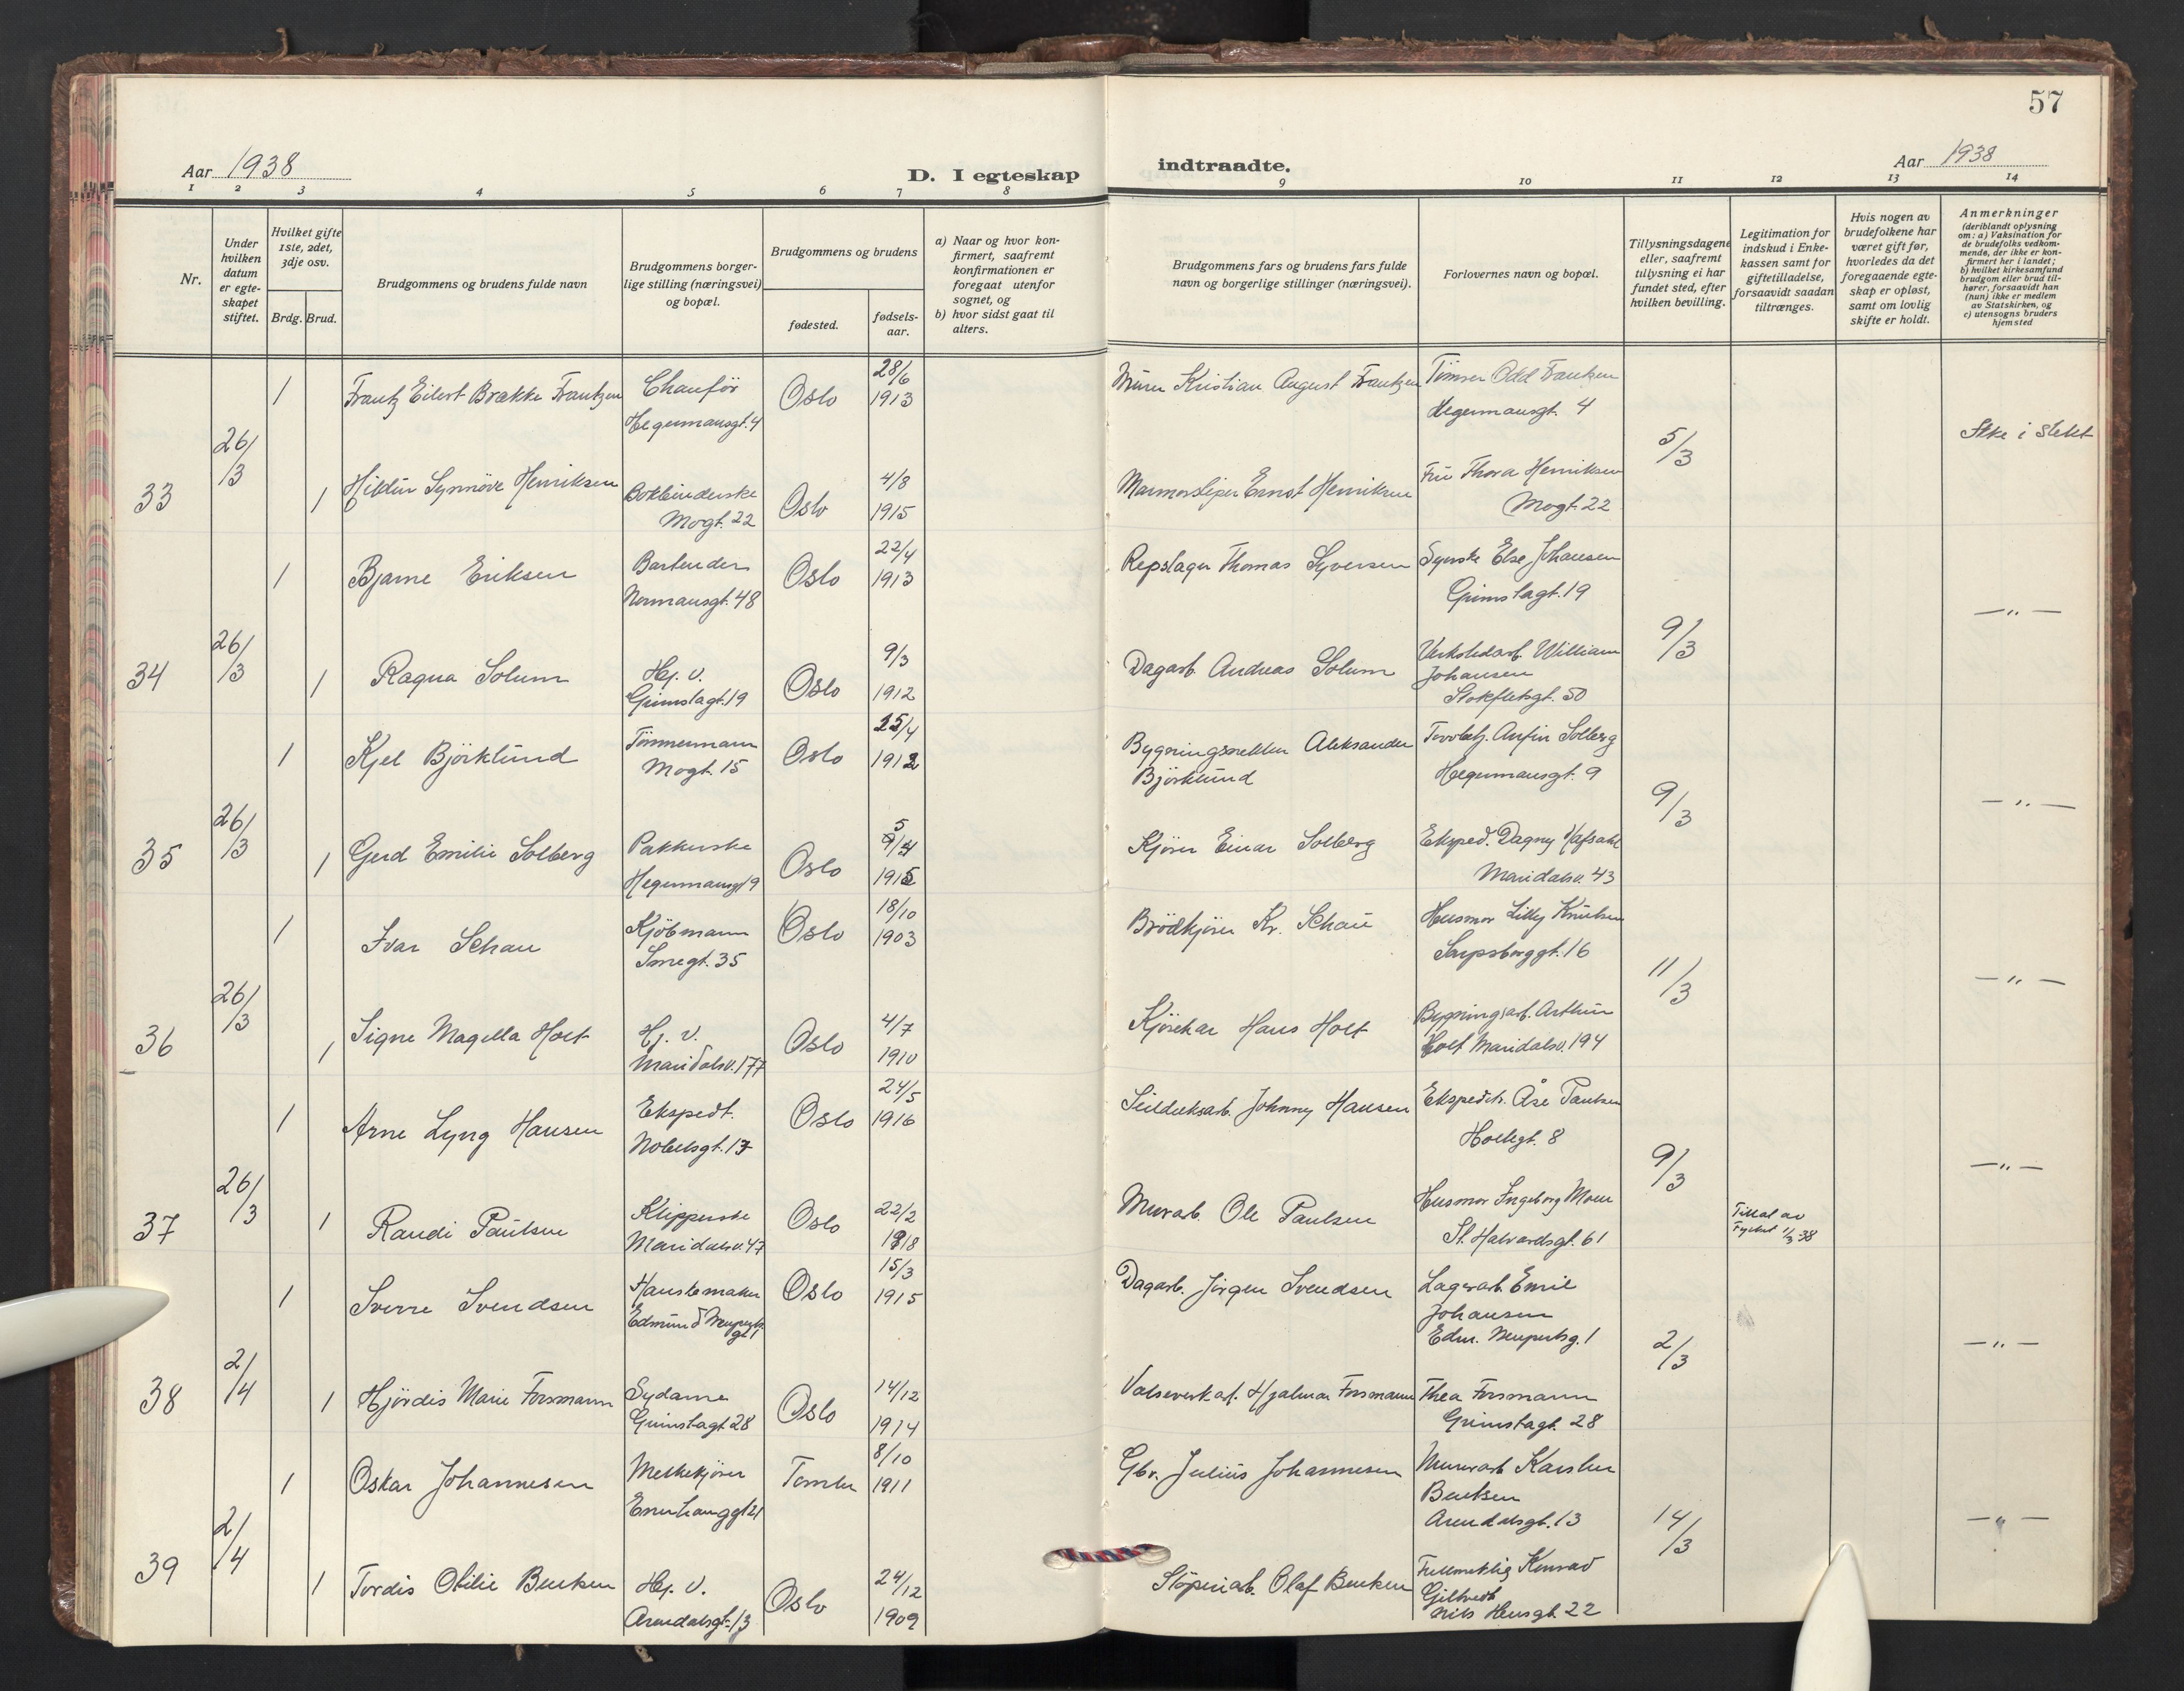 57
Aar 1938
D. I egteskap
indtraadte.
Aar 1938
1 2 3 4 5 6 7 8 9 10 11 12 13 14
Nr.
Under
hvilken
datum
er egte-
skapet
stiftet.
Hvilket gifte
1ste, 2det,
3dje osv.
Brdg. Brud.
Brudgommens og brudens fulde navn
Brudgommens borger-
lige stilling (næringsvei)
og bopæl.
Brudgommens og brudens
fødested.
fødsels-
aar.
a) Naar og hvor kon-
firmert, saafremt
konfirmationen er
foregaat utenfor
sognet, og
b) hvor sidst gaat til
alters.
Brudgommens fars og brudens fars fulde
navn og borgerlige stillinger (næringsvei).
Forlovernes navn og bopæl.
Tillysningsdagene
eller, saafremt
tillysning ei har
fundet sted, efter
hvilken bevilling.
Legitimation for
indskud i Enke-
kassen samt for
giftetilladelse,
forsaavidt saadan
tiltrænges.
Hvis nogen av
brudefolkene har
været gift før,
hvorledes da det
foregaaende egte-
skap er opløst,
samt om lovlig
skifte er holdt.
Anmerkninger
(deriblandt oplysning
om: a) Vaksination for
de brudefolks vedkom-
mende, der ikke er kon-
firmert her i landet;
b) hvilket kirkesamfund
brudgom eller brud til-
hører, forsaavidt han
(hun) ikke er medlem
av Statskirken, og
c) utensogns bruders
hjemsted
33
26/3
1
Frantz Eilert Brække Frantzen
Chauför
Hegermansgt. 4
Oslo
28/6
1913
Murer Kristian August Frantzen
Tömrer Odd Frantzen
Hegermansgt. 4
5/3
Ikke i slekt
1
Hildur Synnöve Henriksen
Bokbinderske
Mogt. 22
Oslo
4/8
1915
Marmorsliper Ernst Henriksen
Fru Thora Henriksen
Mogt. 22
34
26/3
1
Bjarne Eriksen
Bartender
Normansgt. 48
Oslo
22/4
1913
Repslager Thomas Syversen
Syerske Else Johansen
Grimstagt. 19
9/3
— „ —
1
Ragna Solum
Hj. v.
Grimstagt. 19
Oslo
9/3
1912
Dagarb. Andreas Solum
Verkstedarb. William
Johansen
Stokfletsgt. 50
35
26/3
1
Kjel Björklund
Tömmermann
Mogt. 15
Oslo
25/4
1912
Bygningsnekker Aleksander
Björklund
Anfin Solberg
Hegermansgt. 9
9/3
— „ —
1
Gerd Emilie Solberg
Pakkerske
Hegermansgt 9
Oslo
5
/4
1915
Kjörer Einar Solberg
Eksped. Dagny Hafsahl
Maridalsv. 43
36
26/3
1
Ivar Schau
Kjöbmann
Sinegt. 35
Oslo
18/10
1903
Brödkjörer Kr. Schau
Husmor Lilly Knutsen
Sarpsborggt. 16
11/3
— „ —
1
Signe Magella Holt
Hj. v.
Maridalsv. 177
Oslo
4/7
1910
Kjörekar Hans Holt
Bygningsarb. Arthur
Holt Maridalsv. 194
37
26/3
1
Arne Lyng Hansen
Ekspedt.
Nobelsgt. 17
Oslo
24/5
1916
Johnny Hansen
Ekspeditr. Åse Paulsen
Holtegt. 8
9/3
— „ —
1
Randi Paulsen
Klipperske
Maridalsv. 47
Oslo
22/2
1918
Murarb. Ole Paulsen
Husmor Ingeborg Moen
St. Halvardsgt. 61
Tillat av
Fylket 11/3 38
38
2/4
1
Sverre Svendsen
Hanskemaker
Edmund Neuperts
gt 1
Oslo
15/3
1915
Dagarb. Jörgen Svendsen
Lagerarb. Emil
Johansen
Edm. Neupertsg. 1
2/3
— „ —
1
Hjördis Marie Forsmann
Sydame
Grimstagt 28
Oslo
14/12
1914
Valseverkarb. Hjalmar Forsmann
Thea Forsmann
Grimstagt. 28
39
2/4
1
Oskar Johannesen
Melkekjörer
Enerhauggt 21
Tomter
8/10
1911
Gbr. Julius Johannesen
Murerarb Karsten
Bentsen
Arendalsgt. 13
14/3
— „ —
1
Tordis Otilie Bentsen
Hj. v.
Arendalsgt. 13
Oslo
24/12
1909
Stöperiarb. Olaf Bentsen
Fullmektig Konrad
Giltvedt
Nils Huusgt. 22